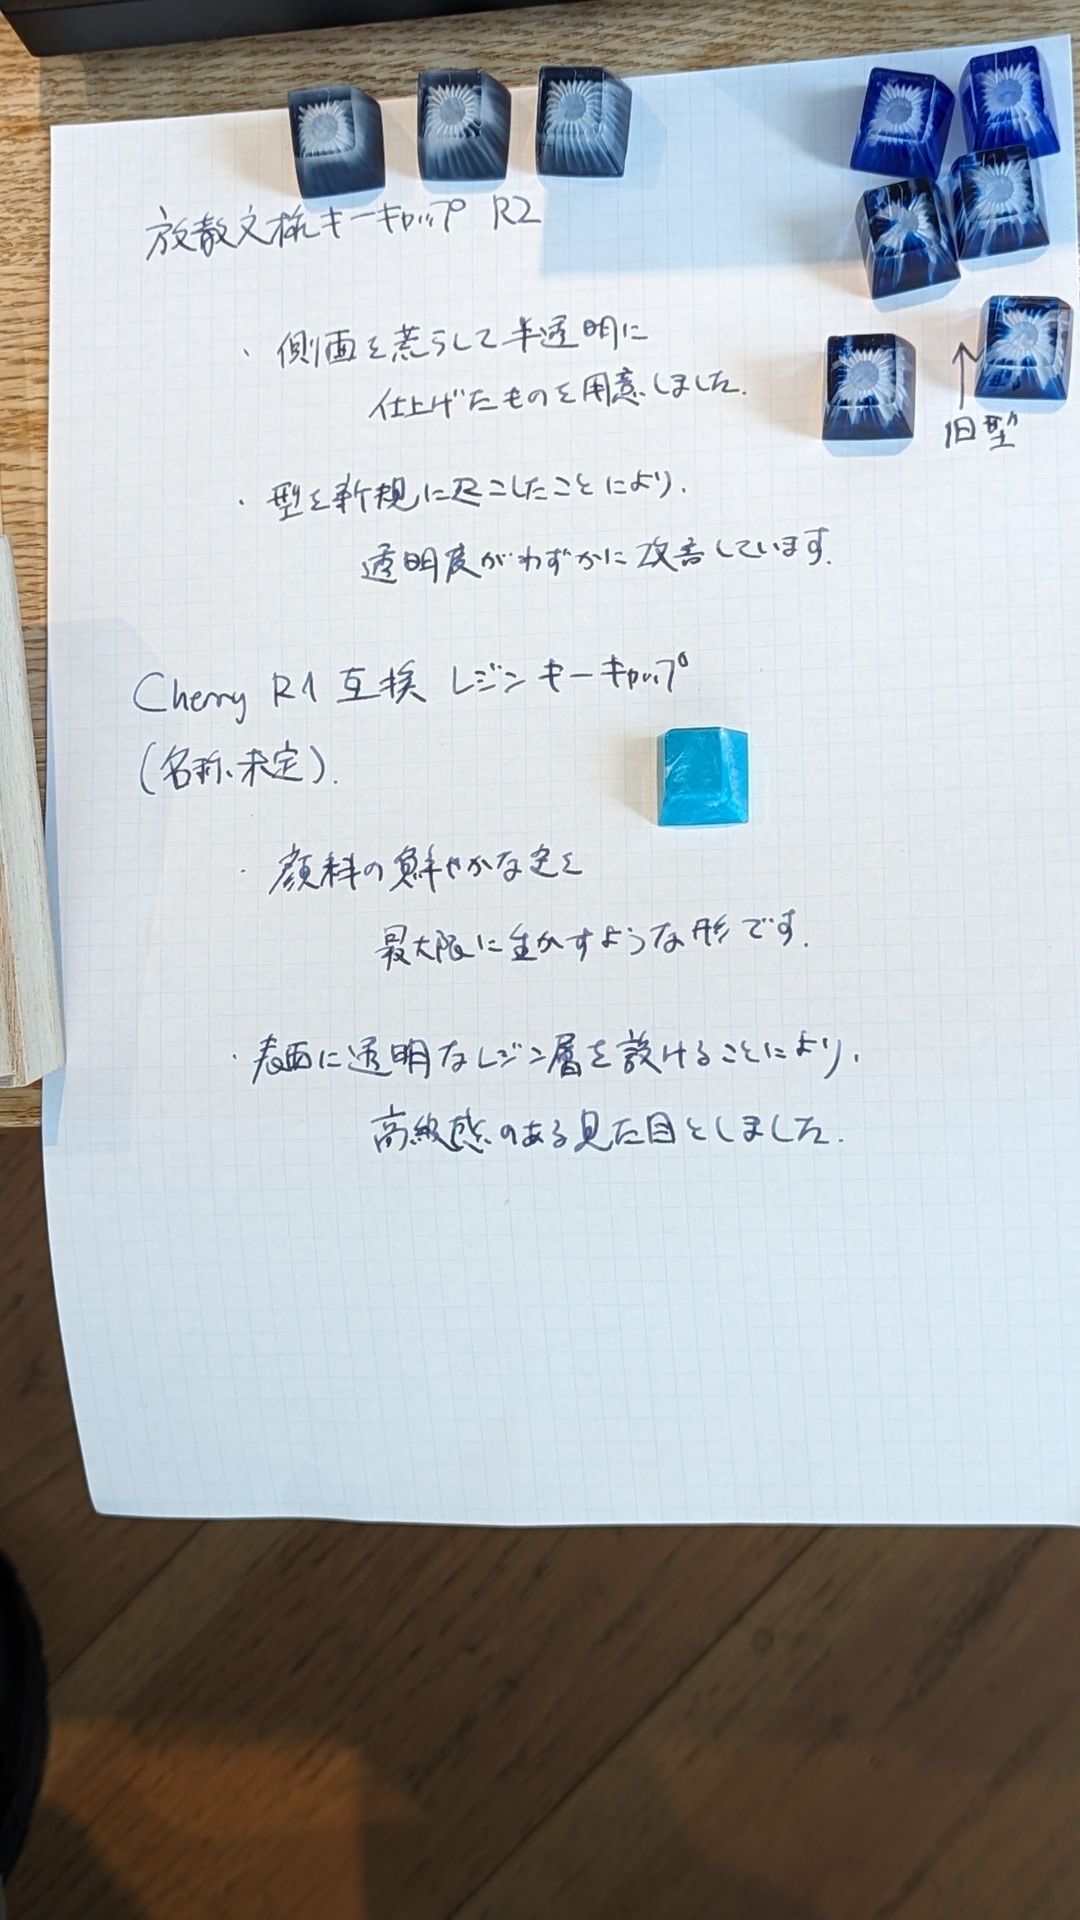 放散文様キーキャップ R2
・側面を荒らして半透明に
仕上げたものを用意しました.
旧型
・型を新規に起こしたことにより,
透明度がわずかに改善しています.
Cherry R1 互換 レジンキーキャップ
(名称未定).
・顔料の鮮やかな色を
最大限に生かすような形です.
・表面に透明なレジン層を設けることにより,
高級感のある見た目としました.